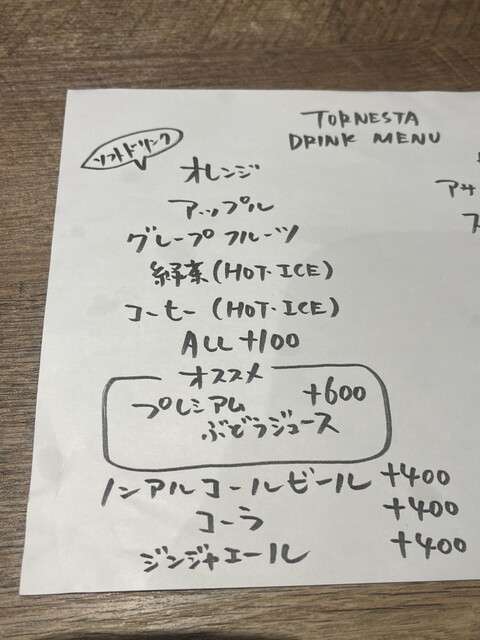 TORNESTA
DRINK MENU
ソフトドリンク
オレンジ
アップル
グレープフルーツ
緑茶(HOT・ICE)
コーヒー(HOT・ICE)
ALL +100
オススメ
プレミアム +600
ぶどうジュース
ノンアルコールビール +400
コーラ +400
ジンジャエール +400
アサ